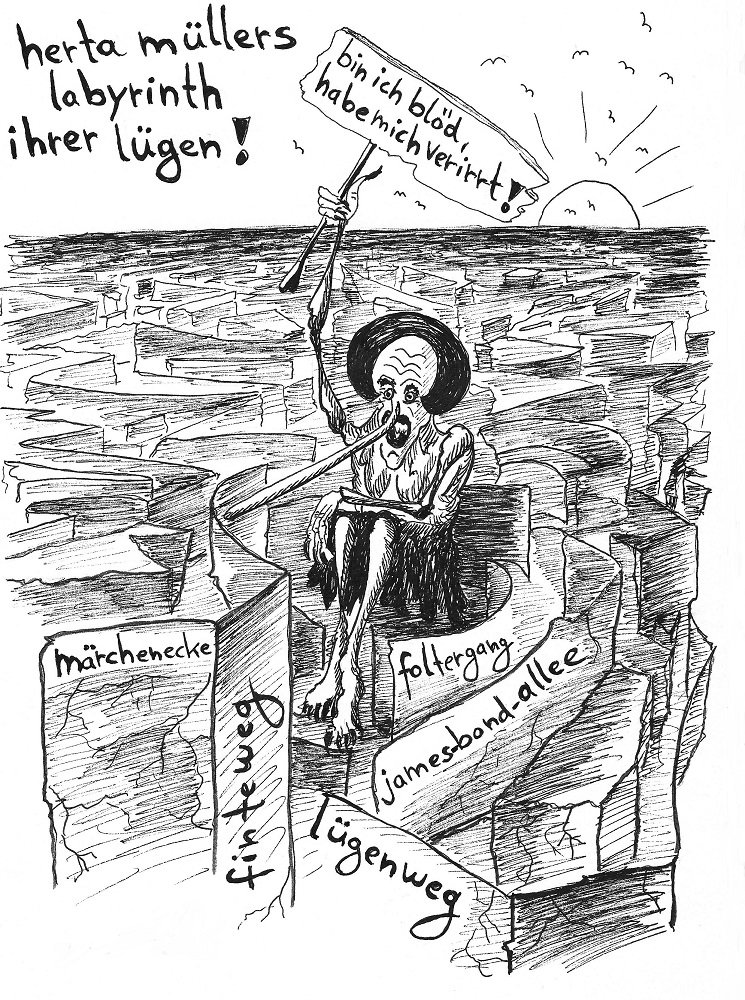 herta müllers
labyrinth
ihrer lügen!
bin ich blöd,
habe mich verirrt!
märchenecke
finteweg
foltergang
james-bond-allee
lügenweg